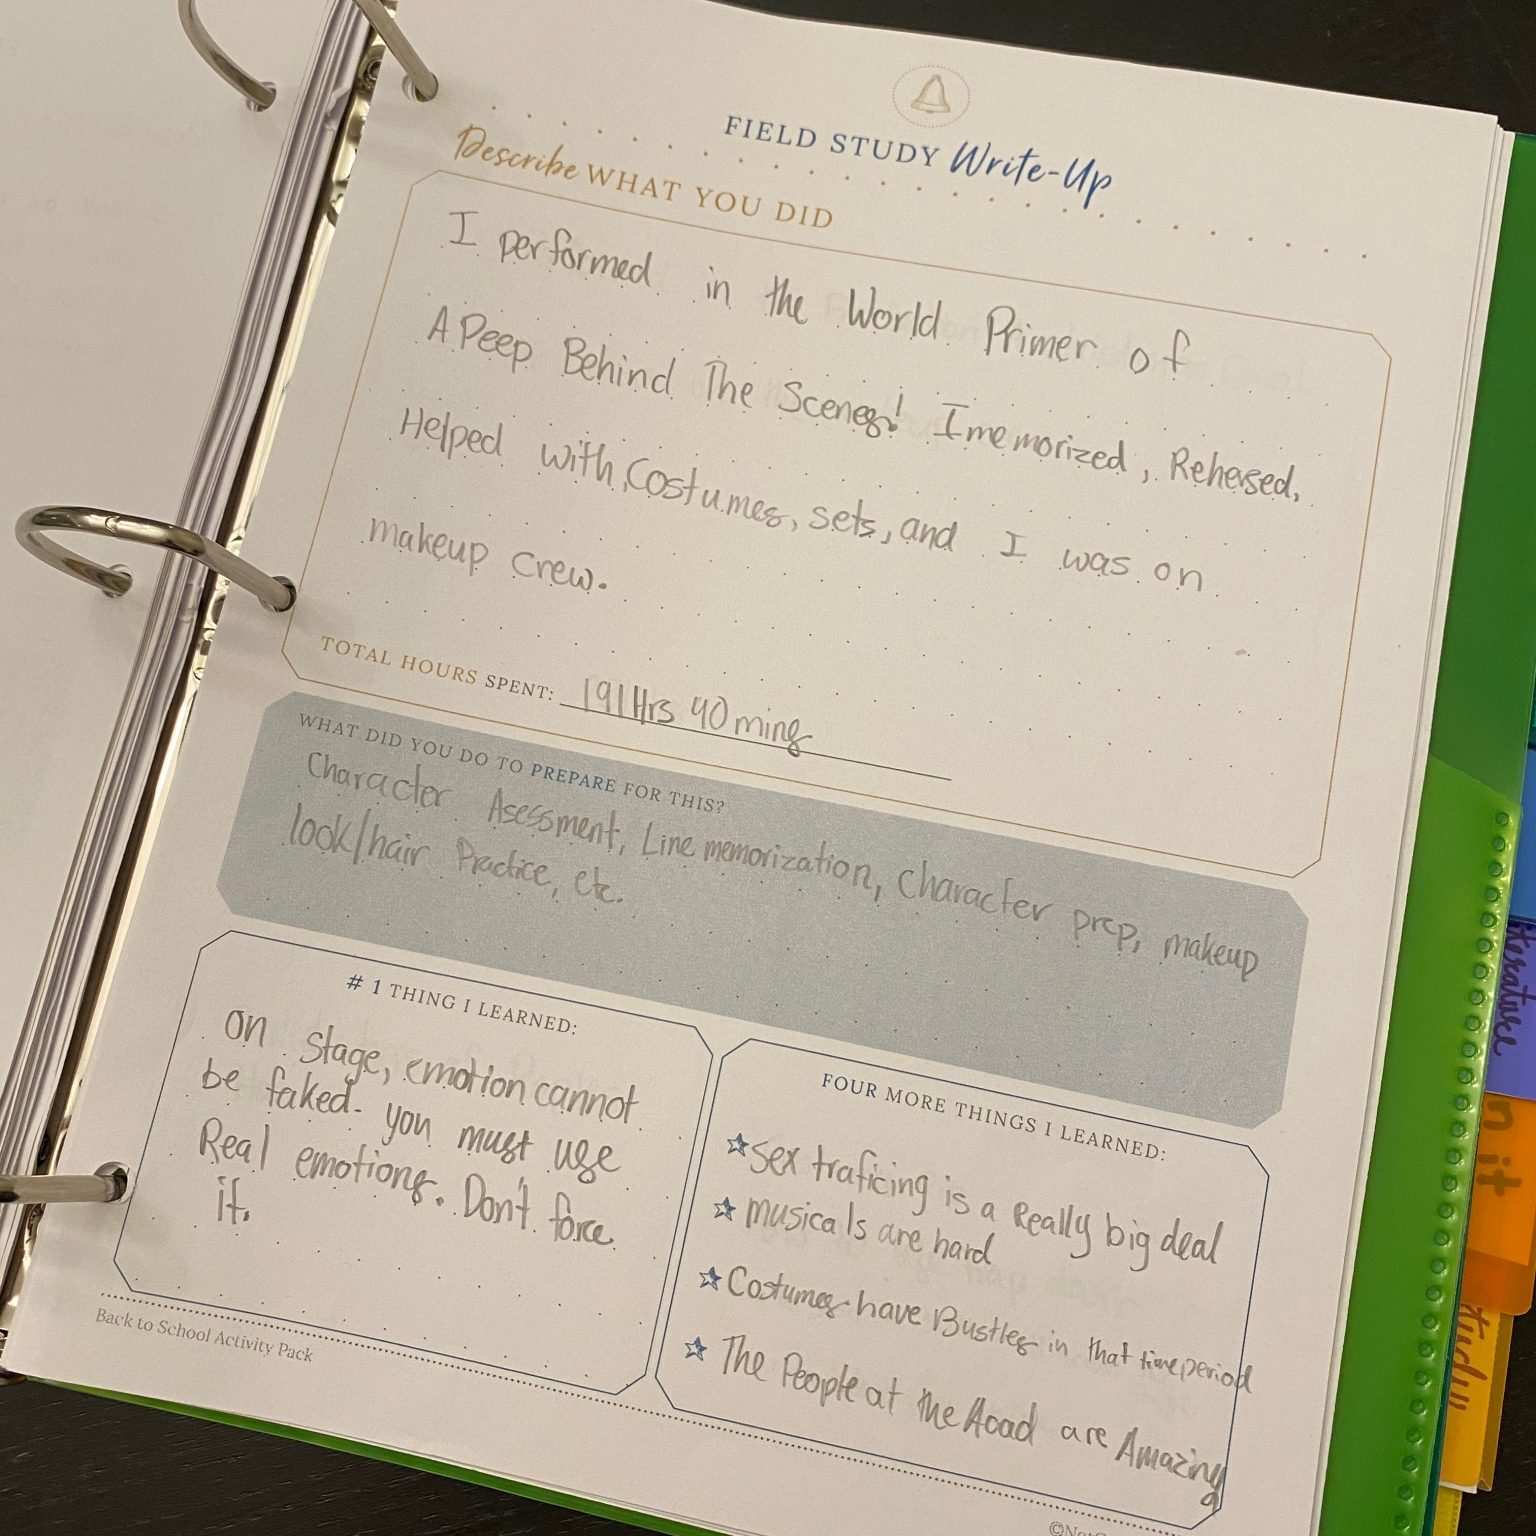 FIELD STUDY Write-Up
Describe WHAT YOU DID
I performed in the World Primer of
A Peep Behind The Scenes! I memorized, Rehersed,
Helped with, Costumes, sets, and I was on
makeup crew.
TOTAL HOURS SPENT: 191 Hrs 40 mins
WHAT DID YOU DO TO PREPARE FOR THIS?
Character Asessment, Line memorization, Character prep, makeup
look/hair Practice, etc.
# 1 THING I LEARNED:
on stage, emotion cannot
be faked. you must use
Real emotions. Don't force
it.
FOUR MORE THINGS I LEARNED:
Sex traficing is a Really big deal
musicals are hard
Costumes have Bustles in that time period
The People at the Acad are Amazing
Back to School Activity Pack
terature
nit
tudy